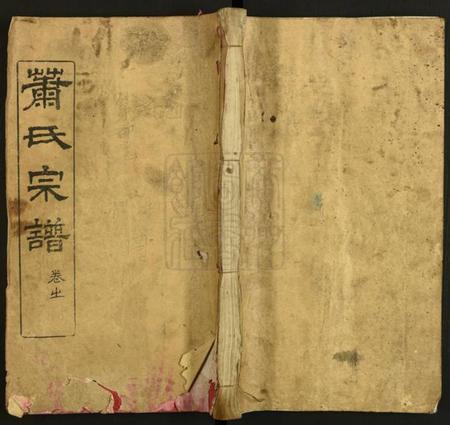 蕭氏宗譜
卷㞢